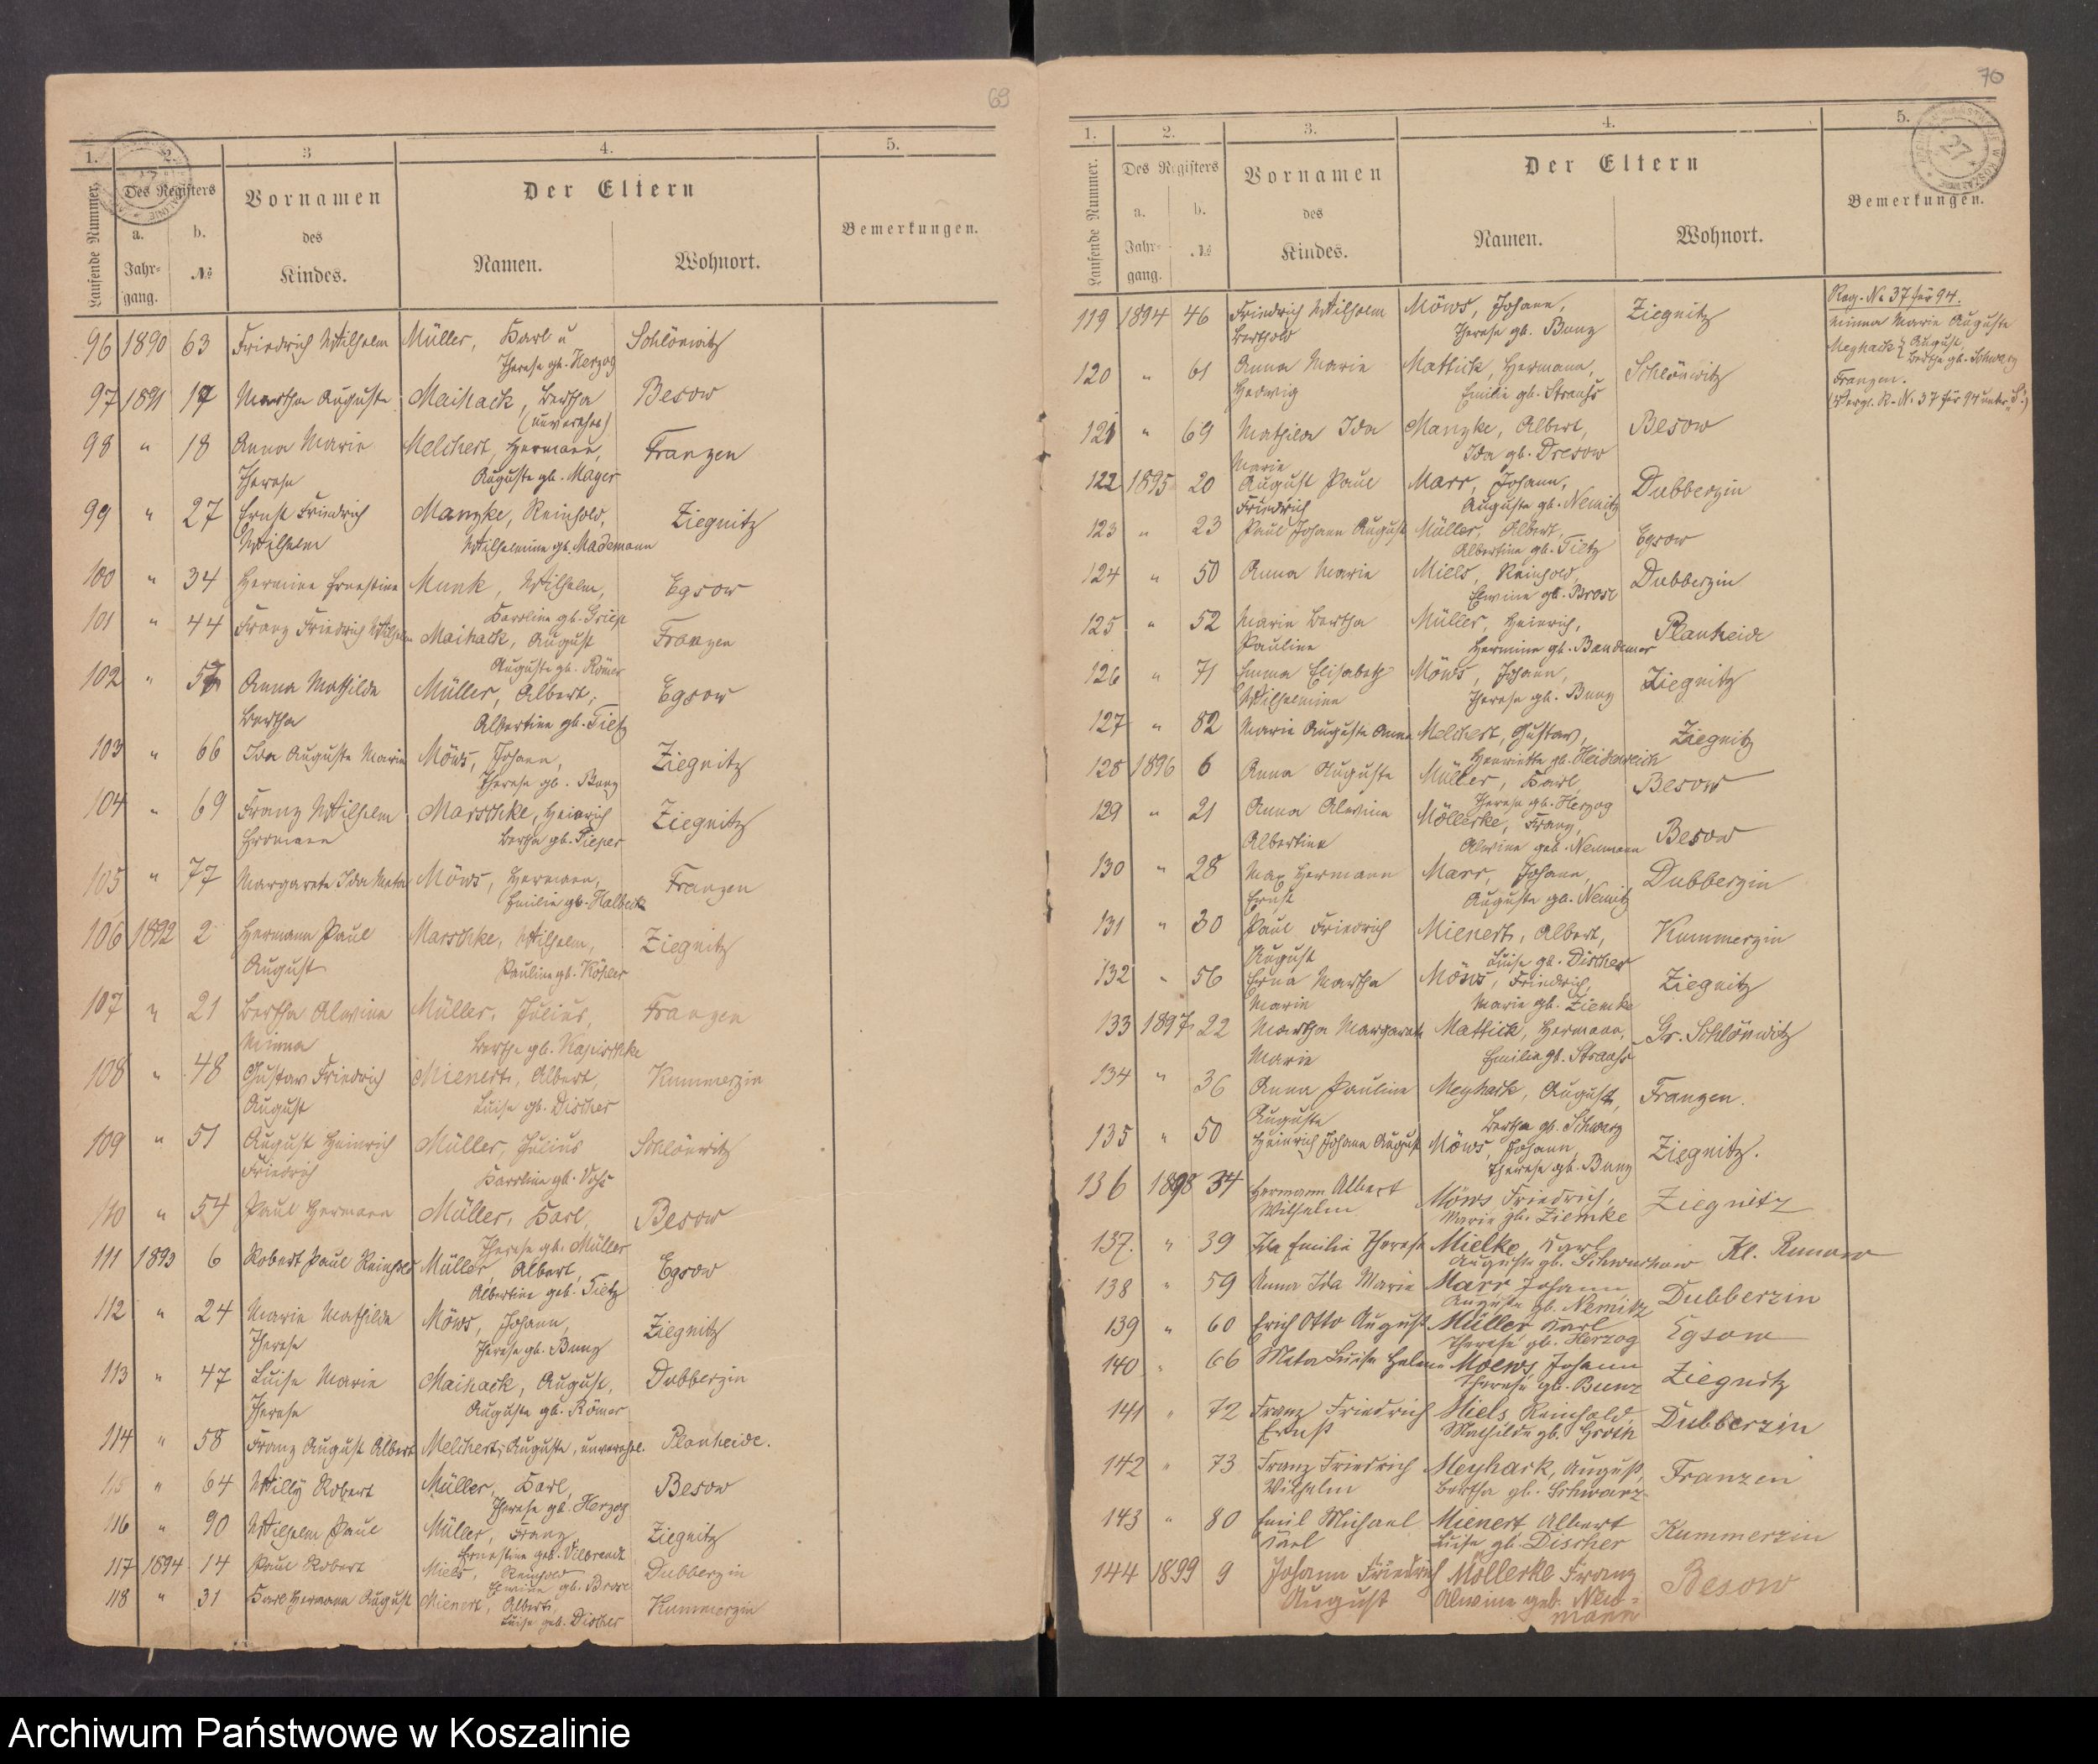 69
1. 2. 3 4. 5.
Laufende Nummer. Des Registers Vornamen des Kindes. Der Eltern Bemerkungen.
a. Jahrgang. b. № Namen. Wohnort.
96 1890 63 Friedrich Wilhelm Müller, Karl u Schlönwitz
Therese gb. Herzog
97 1891 17 Martha Auguste Maihack, Bertha Besow
(unverehel)
98 " 18 Anna Marie Melchert, Hermann, Franzen
Therese Auguste gb. Mayer
99 " 27 Ernst Friedrich Manzke, Reinhold, Ziegnitz
Wilhelm Wilhelmine gb. Mademann
100 " 34 Hermine Ernestine Munk, Wilhelm, Egsow
Karoline gb. Griep
101 " 44 Franz Friedrich Wilhelm Maihack, August Franzen
Auguste gb. Römer
102 " 57 Anna Mathilde Müller, Albert, Egsow
Bertha Albertine gb. Tietz
103 " 66 Ida Auguste Marie Möws, Johann, Ziegnitz
Therese gb. Bunz
104 " 69 Franz Wilhelm Marschke, Heinrich Ziegnitz
Hermann Bertha gb. Pieper
105 " 77 Margarete Ida Meta Möws, Hermann, Franzen
Emilie gb. Halbeck
106 1892 2 Hermann Paul Marschke, Wilhelm, Ziegnitz
August Pauline gb. Köpler
107 " 21 Bertha Alwine Müller, Julius, Franzen
Minna Bertha gb. Napischke
108 " 48 Gustav Friedrich Mienert, Albert, Kummerzin
August Luise gb. Discher
109 " 51 August Heinrich Müller, Julius Schlönwitz
Friedrich Karoline gb. Voß
110 " 54 Paul Hermann Müller, Karl, Besow
Therese gb. Müller
111 1893 6 Robert Paul Reinhold Müller, Albert, Egsow
Albertine geb. Tietz
112 " 24 Marie Mathilde Möws, Johann, Ziegnitz
Therese Therese gb. Bunz
113 " 47 Luise Marie Maihack, August, Dubberzin
Therese Auguste gb. Römer
114 " 58 Franz August Albert Melchert, Auguste, unverehel. Planheide.
115 " 64 Willy Robert Müller, Karl, Besow
Therese gb. Herzog
116 " 90 Wilhelm Paul Müller, Franz, Ziegnitz
Ernestine geb. Vilbrandt
117 1894 14 Paul Robert Miels, Reinhold Dubberzin
Elwine gb. Brose
118 " 31 Karl Hermann August Mienert, Albert, Kummerzin
Luise geb. Discher
70
1. 2. 3. 4. 5.
Laufende Nummer. Des Registers Vornamen des Kindes. Der Eltern Bemerkungen.
a. Jahrgang. b. № Namen. Wohnort.
119 1894 46 Friedrich Wilhelm Möws, Johann, Ziegnitz
Berthold Therese gb. Bunz
Reg. No 37 für 94.
Minna Marie Auguste
Meyhack { August,
Bertha gb. Schwarz
Franzen.
(Vergl. R. No 37 für 94 unter S.)
120 " 61 Anna Marie Mattick, Hermann, Schlönwitz
Hedwig Emilie gb. Strauß
121 " 69 Mathilde Ida Manzke, Albert, Besow
Marie Ida gb. Dresow
122 1895 20 August Paul Marr, Johann, Dubberzin
Friedrich Auguste gb. Nemitz
123 " 23 Paul Johann August Müller, Albert, Egsow
Albertine gb. Tietz
124 " 50 Anna Marie Miels, Reinhold, Dubberzin
Elwine gb. Brose
125 " 52 Marie Bertha Müller, Heinrich, Planheide
Pauline Hermine gb. Bandemer
126 " 71 Emma Elisabeth Möws, Johann, Ziegnitz
Wilhelmine Therese gb. Bunz
127 " 82 Marie Auguste Anna Melchert, Gustav, Ziegnitz
Henriette gb. Heidenreich
128 1896 6 Anna Auguste Müller, Karl, Besow
Therese gb. Herzog
129 " 21 Anna Alwine Möllerke, Franz, Besow
Albertine Alwine geb. Neumann
130 " 28 Max Hermann Marr, Johann, Dubberzin
Ernst Auguste gb. Nemitz
131 " 30 Paul Friedrich Mienert, Albert, Kummerzin
August Luise gb. Discher
132 " 56 Erna Martha Möws, Friedrich, Ziegnitz
Marie Marie gb. Ziemke
133 1897 22 Martha Margarete Mattick, Hermann, Gr. Schlönwitz
Marie Emilie gb. Strauß
134 " 36 Anna Pauline Meyhack, August, Franzen.
Auguste Bertha gb. Schwarz
135 " 50 Heinrich Johann August Möws, Johann, Ziegnitz.
Therese gb. Bunz
136 1898 34 Hermann Albert Möws Friedrich, Ziegnitz
Wilhelm Marie gb. Ziemke
137. " 39 Ida Emilie Therese Mielke, Karl Kl. Runow
Auguste gb. Schwuchow
138 " 59 Anna Ida Marie Marr Johann Dubberzin
Auguste gb. Nemitz
139 " 60 Erich Otto August Müller Karl Egsow
Therese gb. Herzog
140 " 66 Meta Luise Helene Moews, Johann Ziegnitz
Therese gb. Bunz
141 " 72 Franz Friedrich Miels Reinhold, Dubberzin
Ernst Mathilde gb. Groth
142 " 73 Franz Friedrich Meyhack, August, Franzen
Wilhelm Bertha gb. Schwarz
143 " 80 Emil Michael Mienert Albert Kummerzin
Karl Luise gb. Discher
144 1899 9 Johann Friedrich Möllerke Franz Besow
August Alwine geb. Neu=
mann
Archiwum Państwowe w Koszalinie